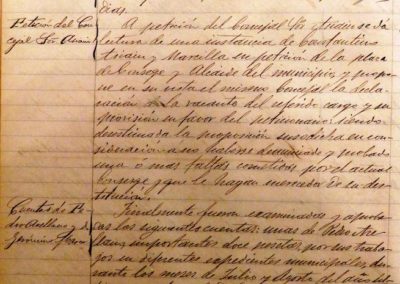 Petición del Con-
cejal Sor
A petición del Concejal Sor se da
lectura de una instancia de Constantino
y Marcilla en petición de la plaza
de Conserge y Alcaide del municipio, y propo-
ne en su vista el mismo Concejal la decla-
racion de la vacante del referido cargo y su
provisión en favor del peticionario; siendo
desestimada la proposición en con-
sideración a no haberse denunciado y probado
una ó mas faltas cometidas por el actual
Conserge y que le hagan merecedor de su des-
titución.
Cuentas de Pe-
dro y de
Finalmente fueron examinadas y aproba-
das las siguientes cuentas: unas de
importantes doce pesetas, por sus traba-
jos en diferentes expedientes municipales, du-
rante los meses de Julio y Agosto del año